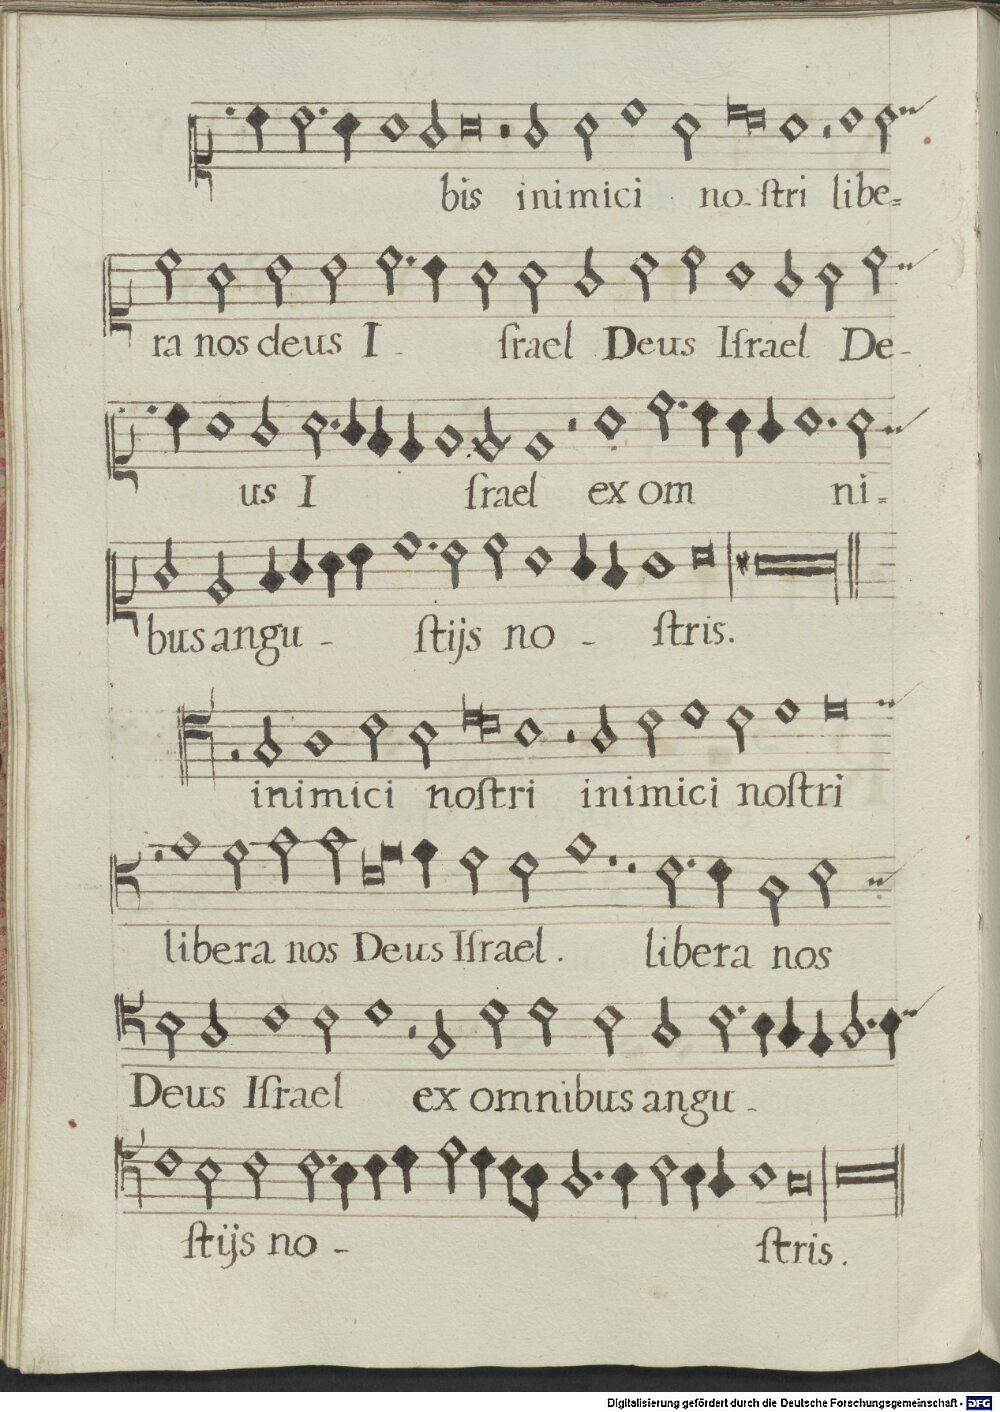 bis inimici no-ſtri libe=
ra nos deus I - ſrael Deus Iſrael De-
us I ſrael ex om ni=
bus angu - ſtijs no - ſtris.
inimici noſtri inimici noſtri
libera nos Deus Iſrael . libera nos
Deus Iſrael ex omnibus angu -
ſtijs no - ſtris .
Digitalisierung gefördert durch die Deutsche Forschungsgemeinschaft - DFG